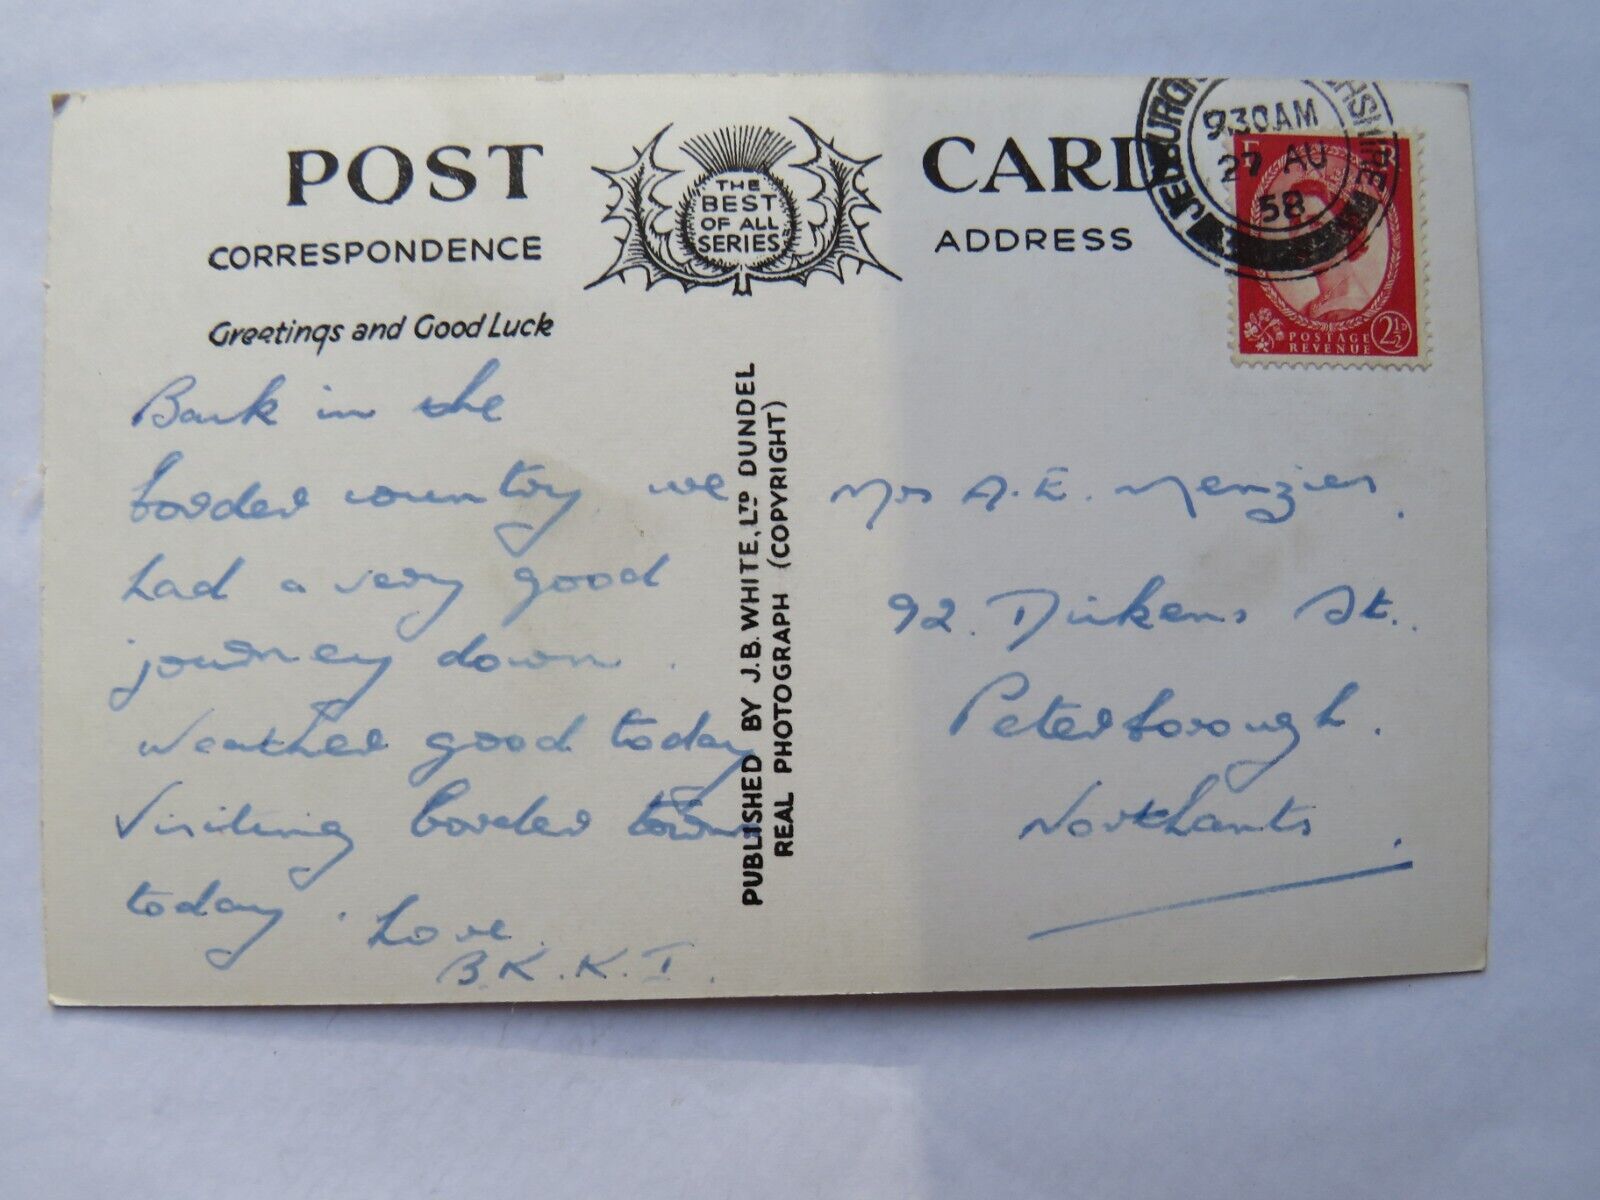 POST CARD
THE
BEST
OF ALL
SERIES
CORRESPONDENCE
ADDRESS
Greetings and Good Luck
Back in the
border country we
had a very good
journey down.
Weather good today
Visiting border towns
today. Love.
B.K.K.I.
PUBLISHED BY J.B. WHITE, LTD DUNDEE
REAL PHOTOGRAPH (COPYRIGHT)
Mrs A.E. Menzies.
92. Dickens St..
Peterborough.
Northants.
JEDBURGH
9.30AM
27 AU
58
E R
POSTAGE
REVENUE
2½D